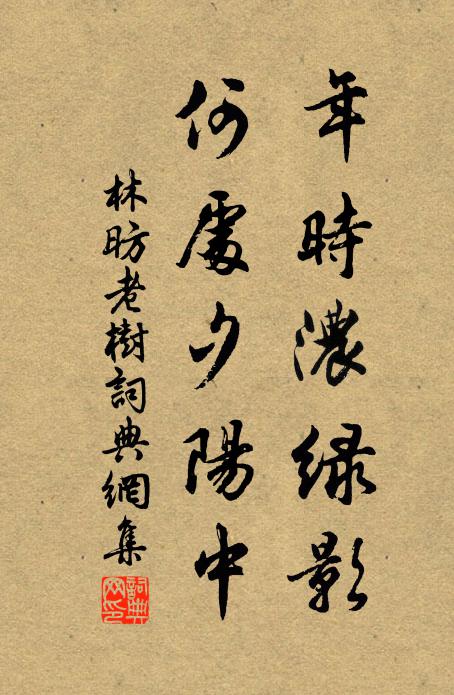 年時濃綠影
何處夕陽中
林昉老樹詞典網集
詞典網印